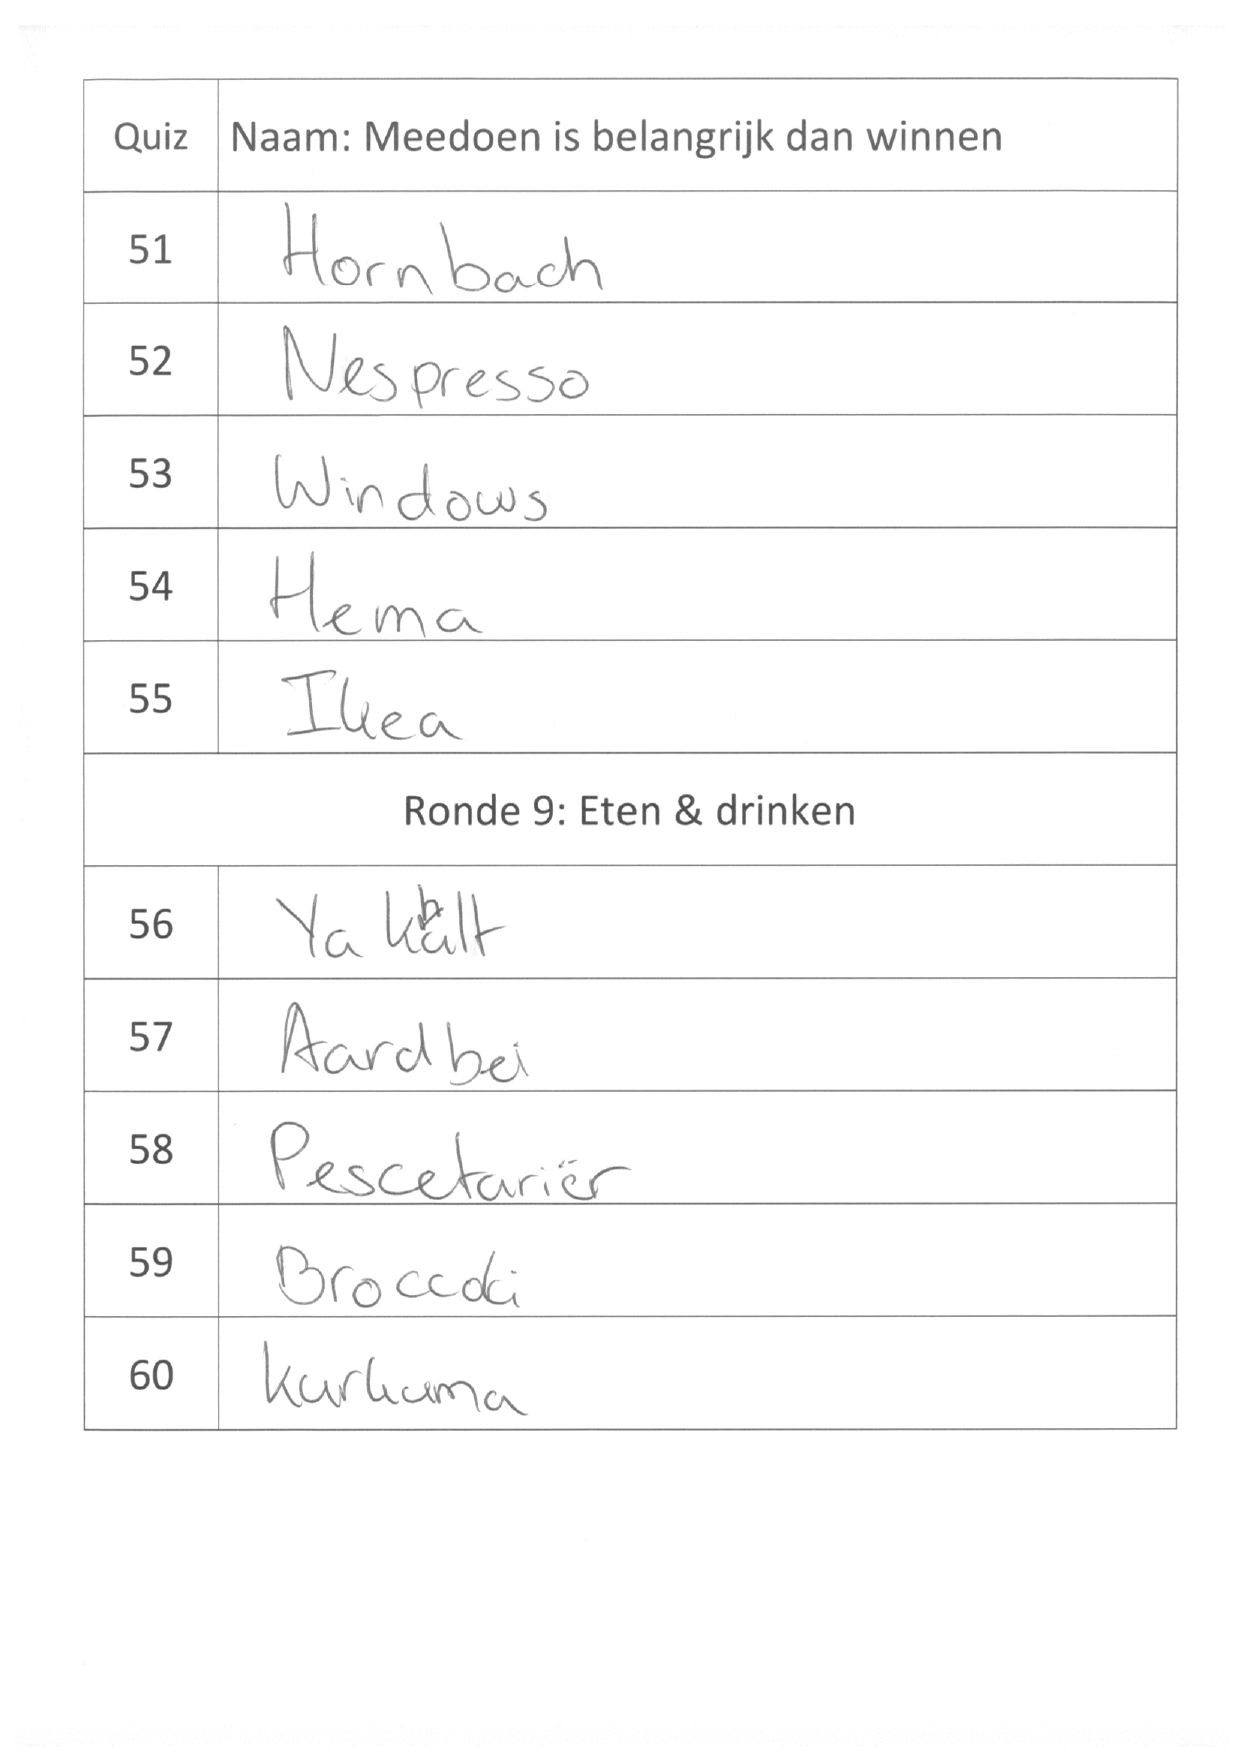 Quiz Naam: Meedoen is belangrijk dan winnen
51 Hornbach
52 Nespresso
53 Windows
54 Hema
55 Ikea
Ronde 9: Eten & drinken
56 Yakhult
57 Aardbei
58 Pescetariër
59 Broccoli
60 Kurkuma